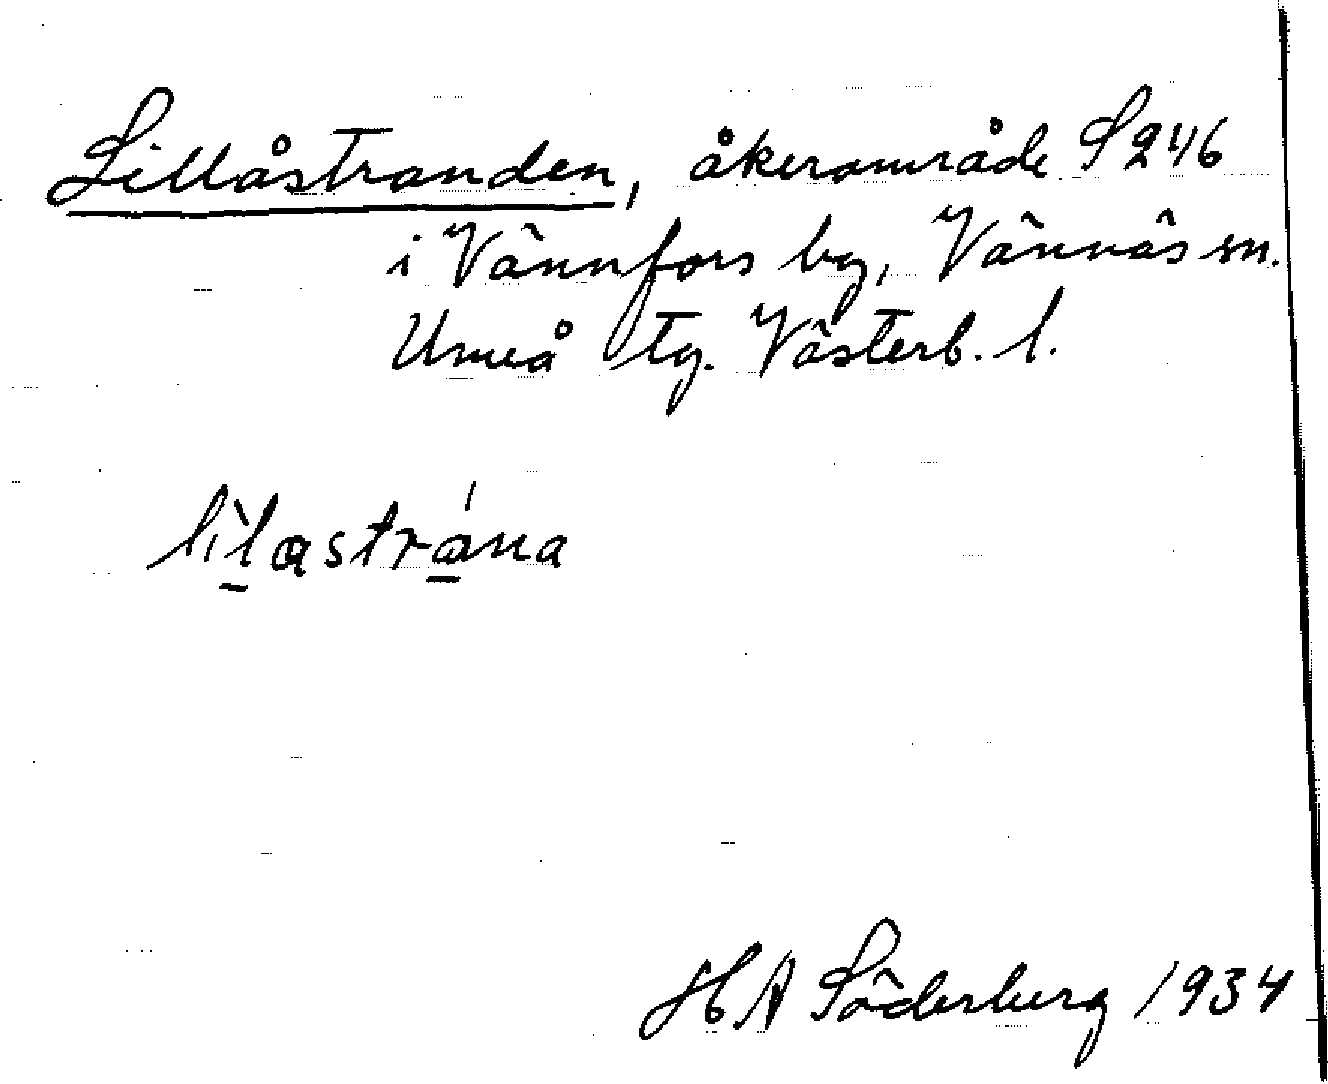 Lillåstranden, åkerområde S246
i Vännfors by, Vännäs sn.
Umeå tg. Västerb. l.
lìlastrána
HA Söderberg 1934